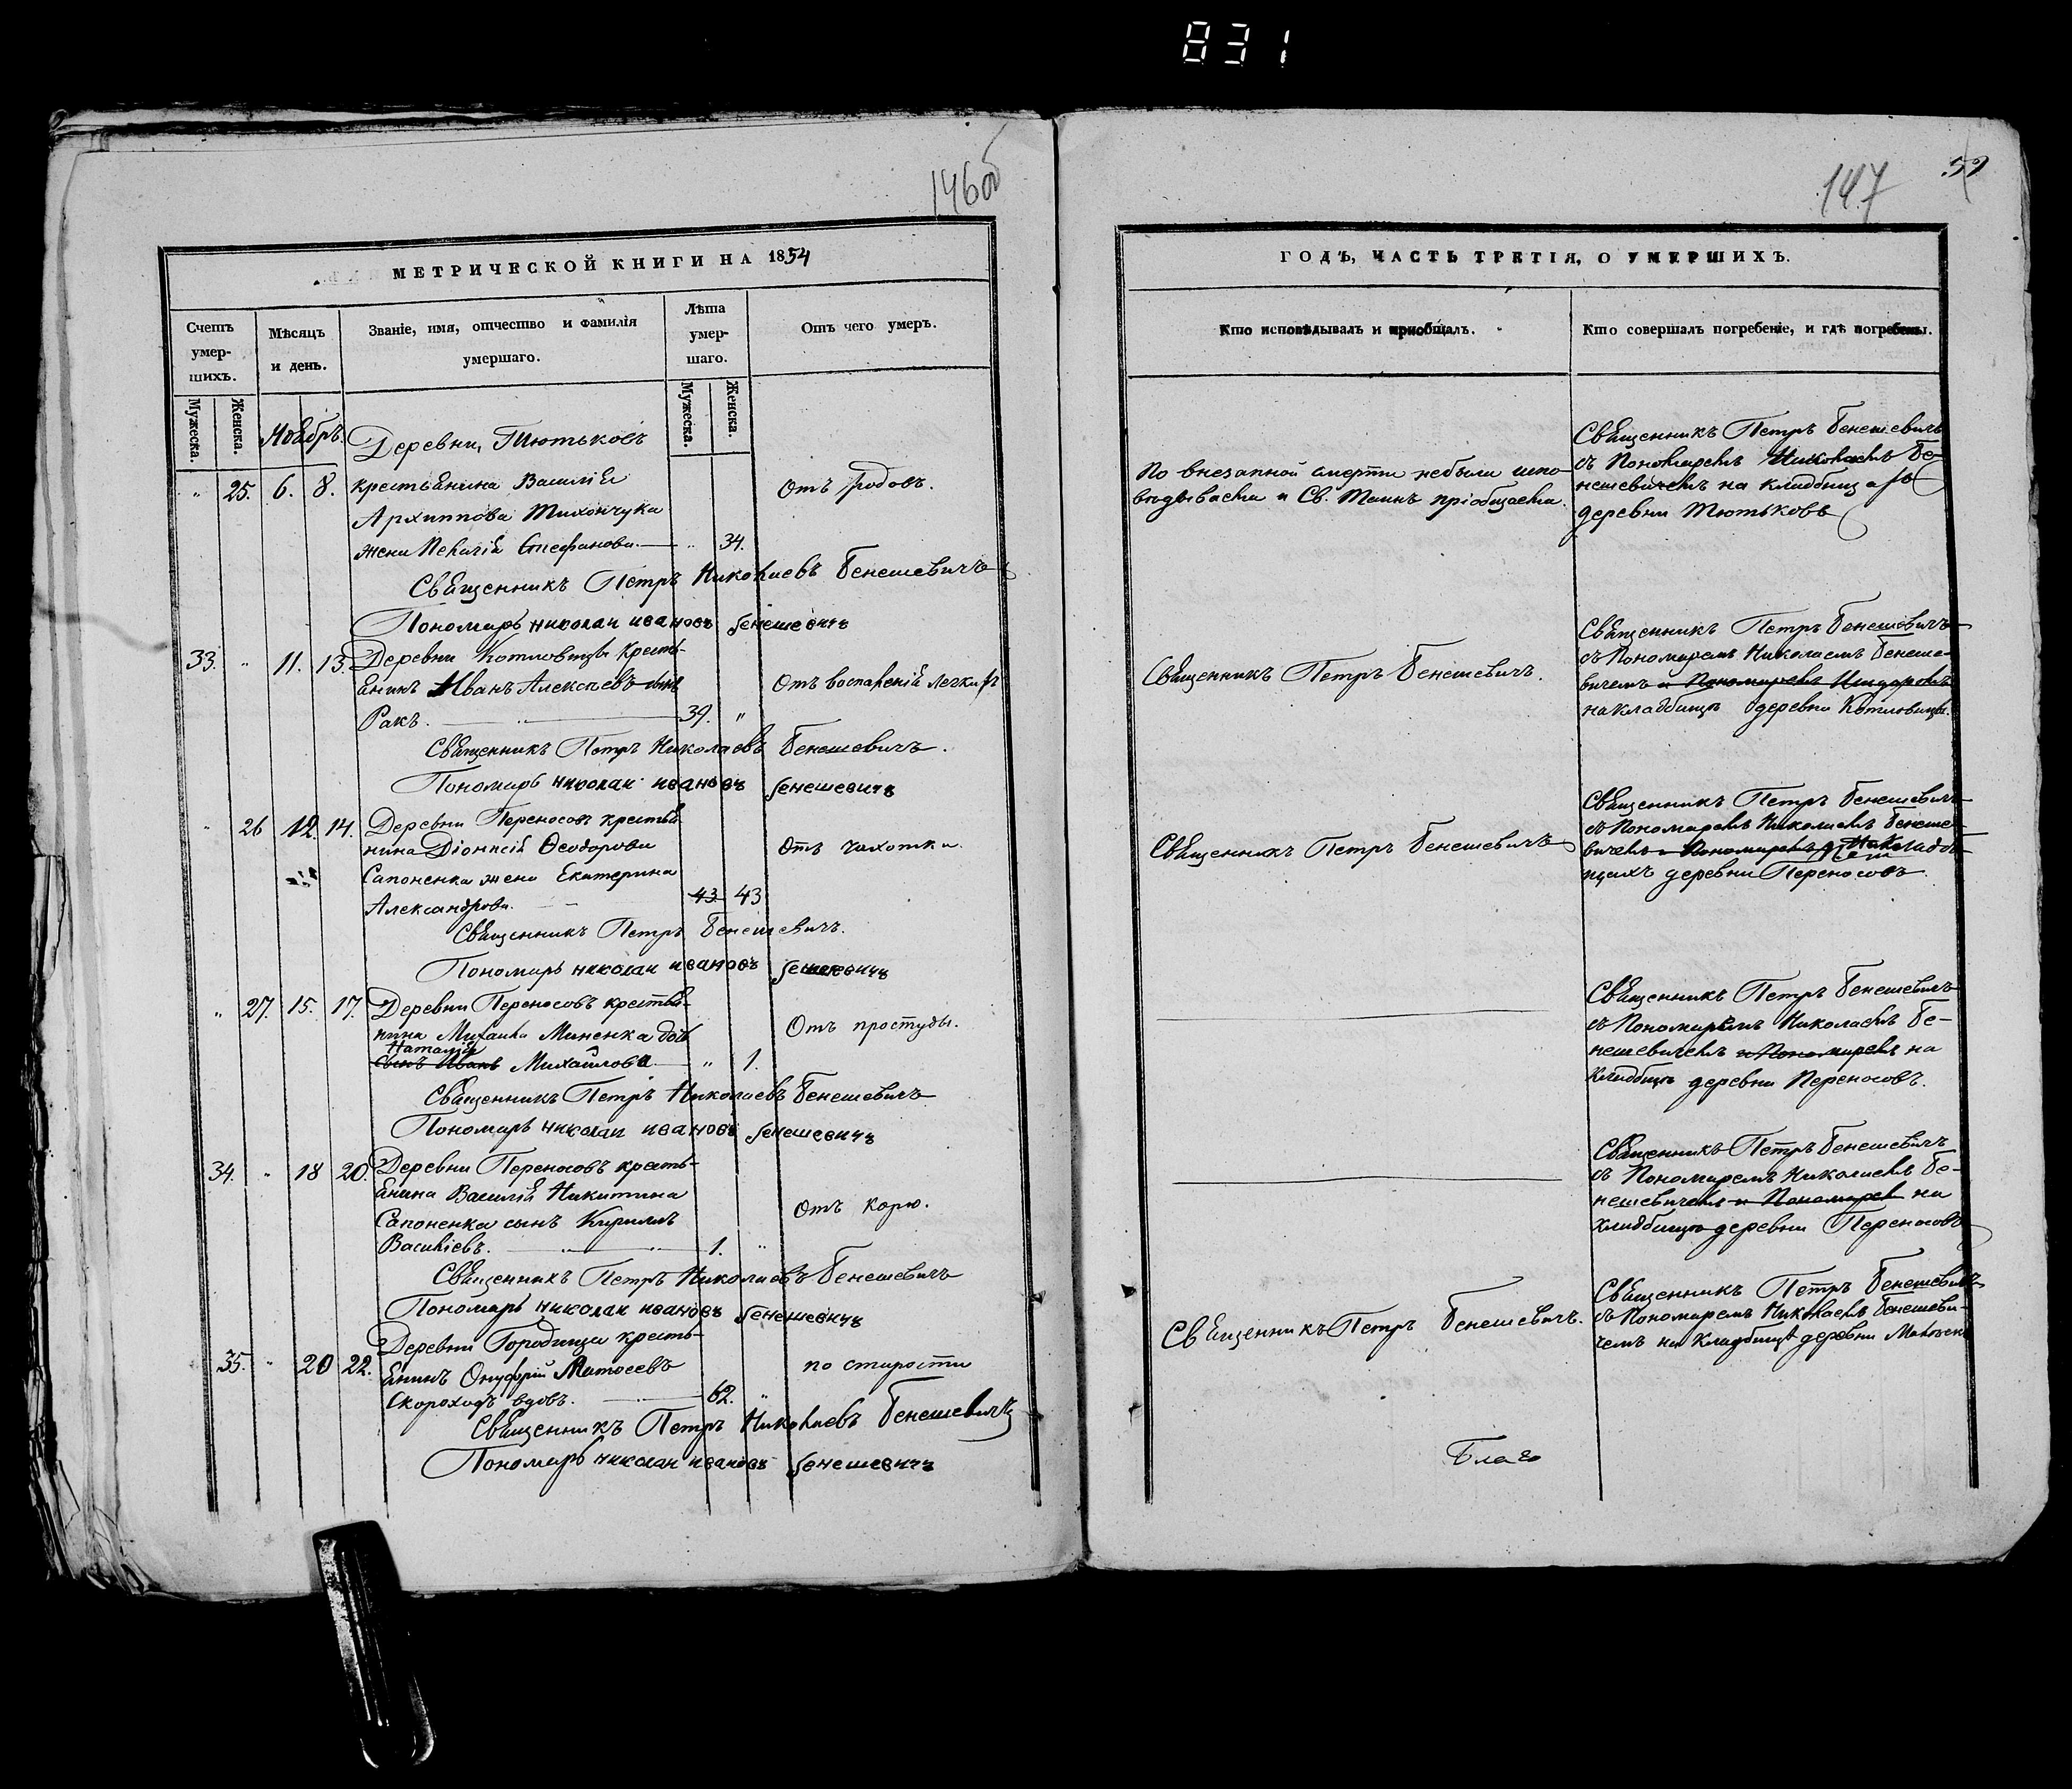 831
146об
МЕТРИЧЕСКОЙ КНИГИ НА 1854
Счетъ умер-шихъ.
Мужеска.
Женска.
Мѣсяцъ и день.
Званіе, имя, отчество и фамилія
умершаго.
Лѣта умер-шаго.
Мужеска.
Женска.
Отъ чего умеръ.
Ноябрь.
Деревни Тютьковъ
" 25. 6. 8. крестьянина Василія Отъ родовъ.
Архиппова Тихончука
жена Пелагія Стефанова. " 34.
Священникъ Петръ Николаевъ Бенешевичъ
Пономарь николаи ивановъ бенешевичъ
33. " 11. 13. Деревни Котловицы кресть-
янинъ Иванъ Алексѣевъ Отъ воспаленій легкихъ
Ракъ. 39. "
Священникъ Петръ Николаевъ Бенешевичъ.
Пономарь николаи ивановъ бенешевичъ
" 26 12. 14. Деревни Переносовъ крестья-
нина Діонисія Ѳеодорова Отъ чахотки.
Сапоненка жена Екатерина
Александрова. 43 43
Священникъ Петръ Бенешевичъ.
Пономарь николаи ивановъ бенешевичъ
" 27. 15. 17. Деревни Переносовъ крестья-
нина Михаила Миненка дочь Отъ простуды.
Наталія
сынъ Иванъ Михайлова. " 1.
Священникъ Петръ Николаевъ Бенешевичъ
Пономарь николаи ивановъ бенешевичъ
34. " 18 20. Деревни Переносовъ кресть-
янина Василія Никитина
Сапоненка сынъ Кириллъ Отъ корю.
Василіевъ. 1. "
Священникъ Петръ Николаевъ Бенешевичъ
Пономарь николаи ивановъ бенешевичъ
Деревни Городища кресть-
35. " 20 22. янинъ Онуфрій Матѳеевъ по старости
Скороходъ вдовъ. 62. "
Священникъ Петръ Николаевъ Бенешевичъ
Пономарь николаи ивановъ бенешевичъ
147
ГОДЪ, ЧАСТЬ ТРЕТІЯ, О УМЕРШИХЪ.
Кто исповѣдывалъ и приобщалъ.
Кто совершалъ погребеніе, и гдѣ погребены.
По внезапной смерти небыли испо-
вѣдываема и Св. Таинъ пріобщаема.
Священникъ Петръ Бенешевичъ
съ Пономаремъ Николаемъ Бе-
нешевичемъ на кладбищахъ
деревни Тютьковъ
Священникъ Петръ Бенешевичъ.
Священникъ Петръ Бенешевичъ
съ Пономаремъ Николаемъ Бенеше-
вичемъ и Пономаремъ
на кладбищѣ деревни Котловицы.
Священникъ Петръ Бенешевичъ
Священникъ Петръ Бенешевичъ
съ Пономаремъ Николаемъ Бенеше-
вичемъ и Пономаремъ на кладби-
щахъ деревни Переносовъ.
Священникъ Петръ Бенешевичъ
съ Пономаремъ Николаемъ Бе-
нешевичемъ и Пономаремъ на
кладбищѣ деревни Переносовъ.
Священникъ Петръ Бенешевичъ
съ Пономаремъ Николаемъ Бе-
нешевичемъ и Пономаремъ на
кладбищѣ деревни Переносовъ
Священникъ Петръ Бенешевичъ.
Священникъ Петръ Бенешевичъ
съ Пономаремъ Николаемъ Бенешеви-
чемъ на кладбищѣ деревни
Благо